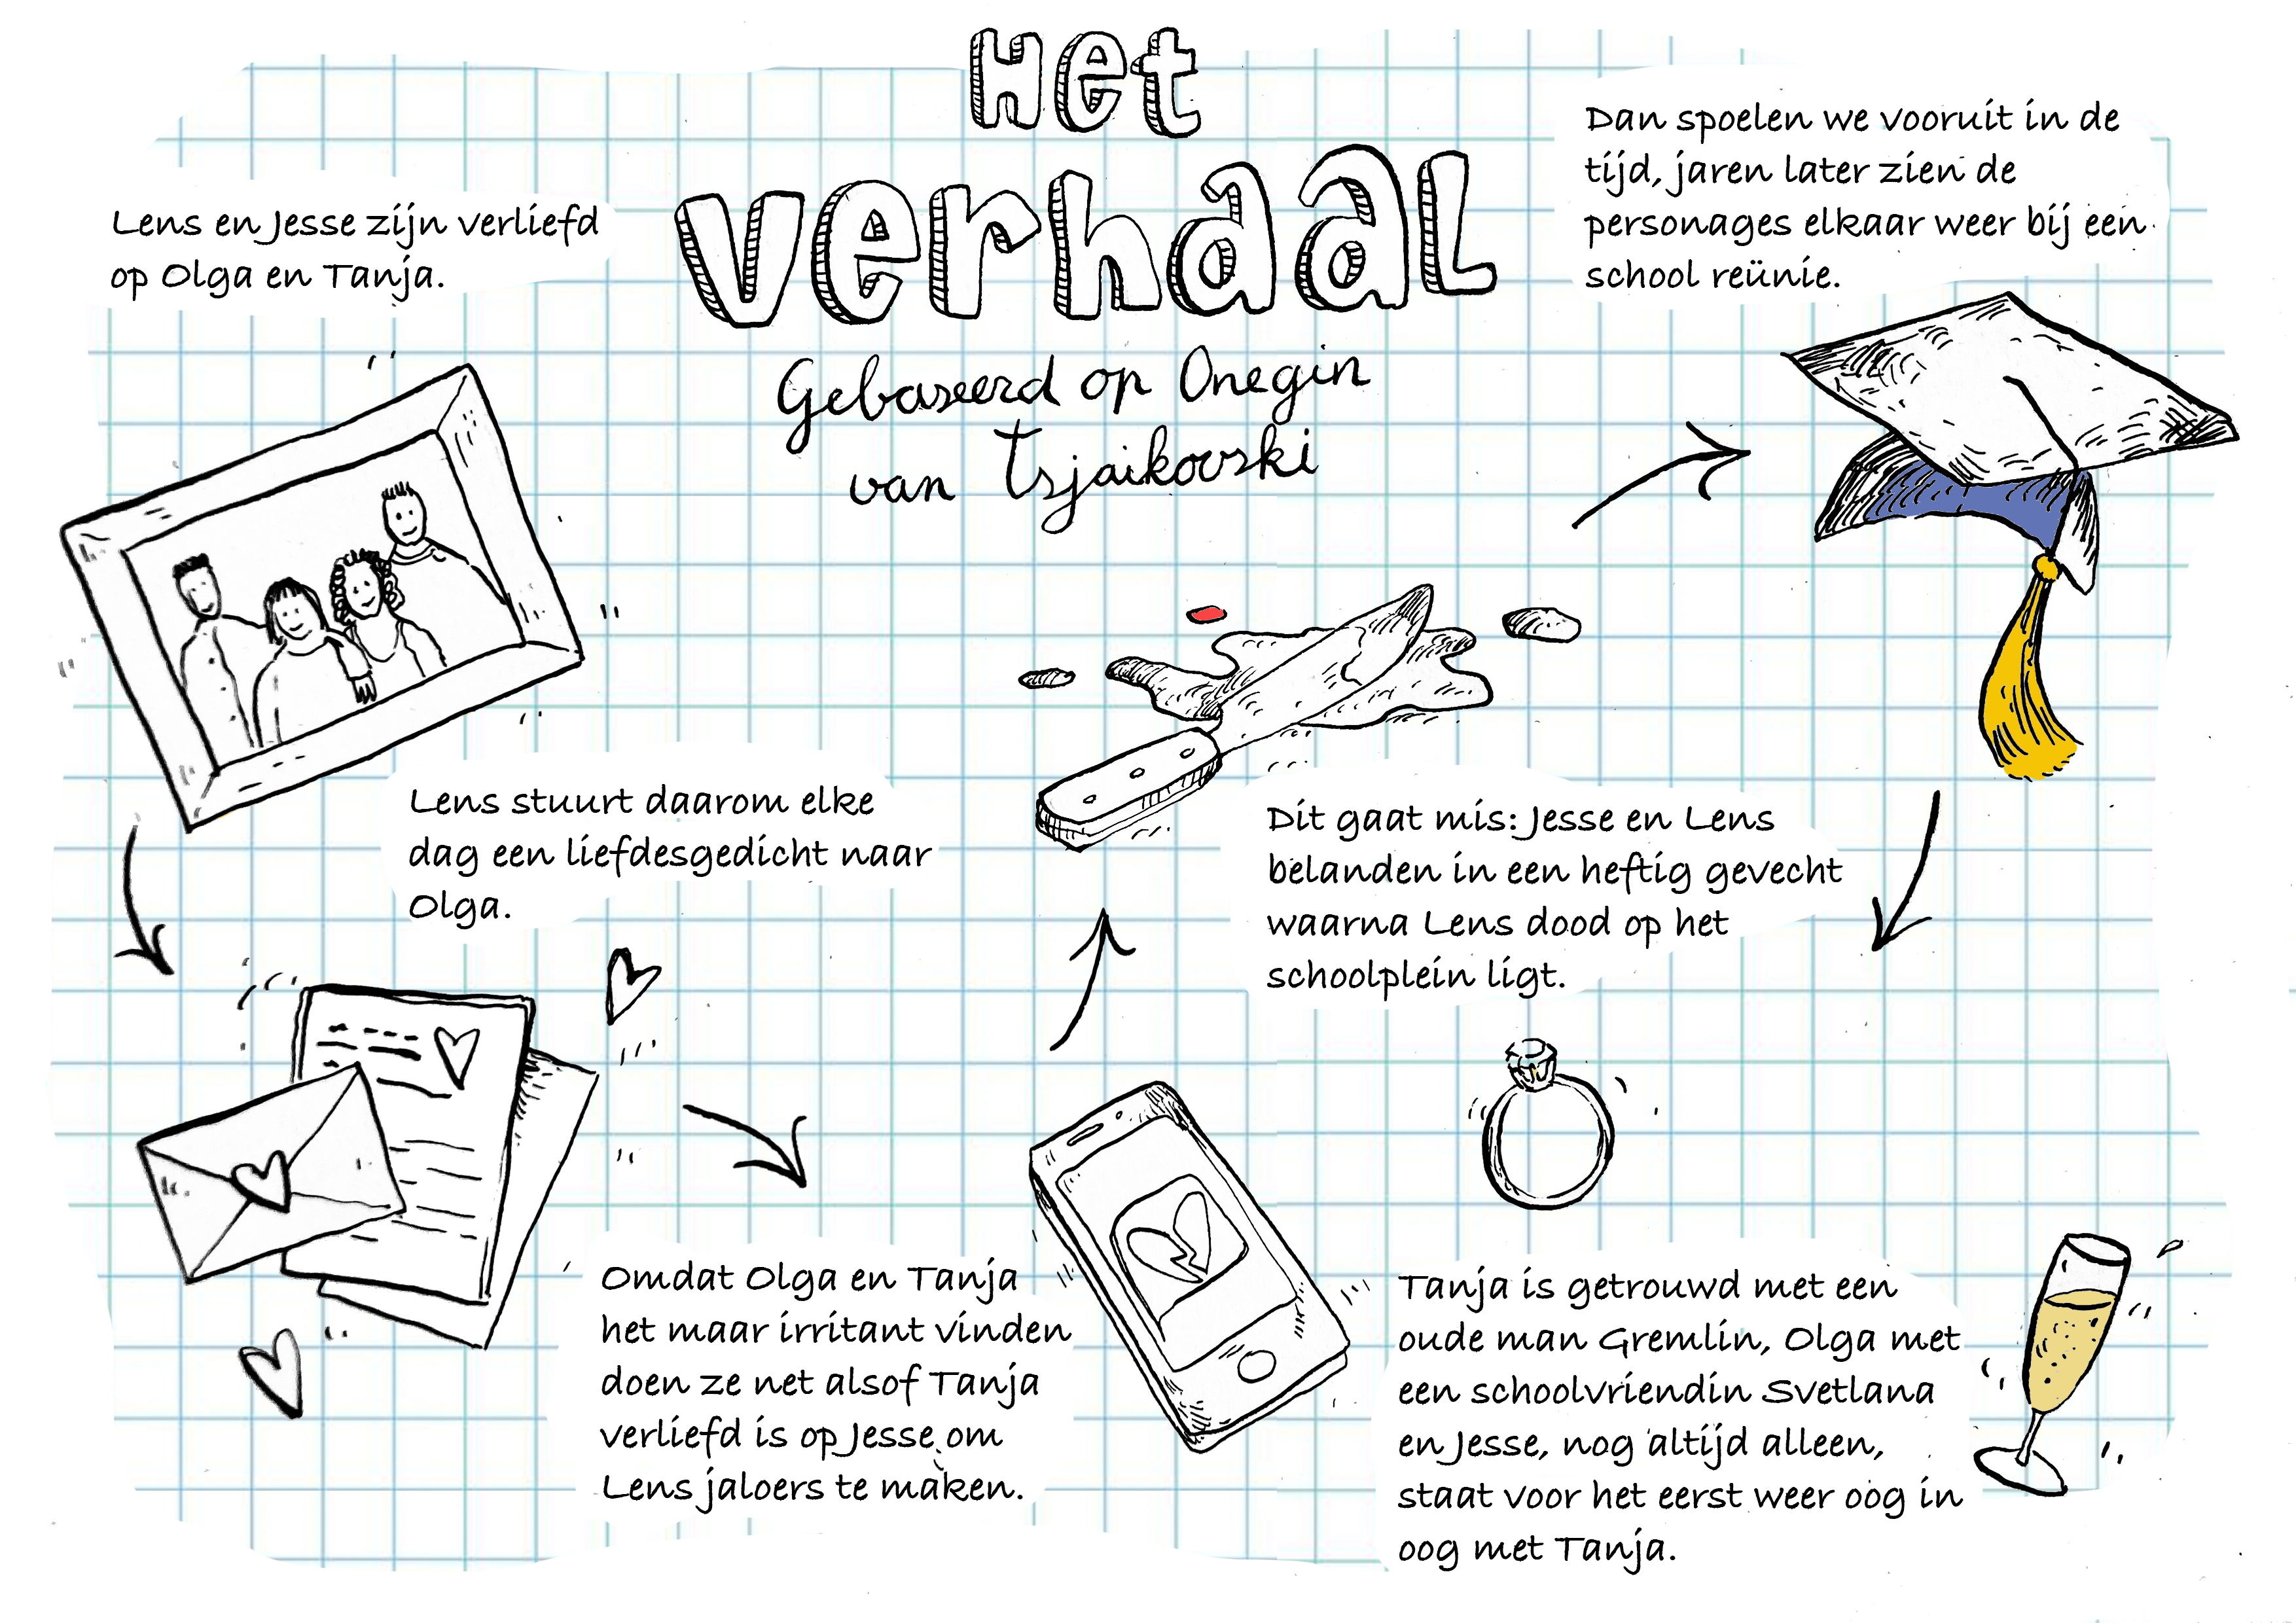 Het
verhaal
Gebaseerd op Onegin
van Tsjaikovski
Lens en Jesse zijn verliefd
op Olga en Tanja.
Lens stuurt daarom elke
dag een liefdesgedicht naar
Olga.
Omdat Olga en Tanja
het maar irritant vinden
doen ze net alsof Tanja
verliefd is op Jesse om
Lens jaloers te maken.
Dit gaat mis: Jesse en Lens
belanden in een heftig gevecht
waarna Lens dood op het
schoolplein ligt.
Dan spoelen we vooruit in de
tijd, jaren later zien de
personages elkaar weer bij een
school reünie.
Tanja is getrouwd met een
oude man Gremlin, Olga met
een schoolvriendin Svetlana
en Jesse, nog altijd alleen,
staat voor het eerst weer oog in
oog met Tanja.